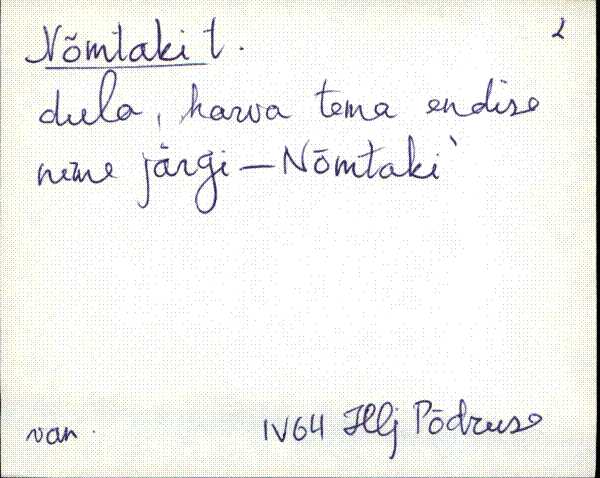 2
Nõmtaki t.
dula, harva tema endise
nime järgi – Nõmtaki`
van. IV 64 Hlj Põdruse